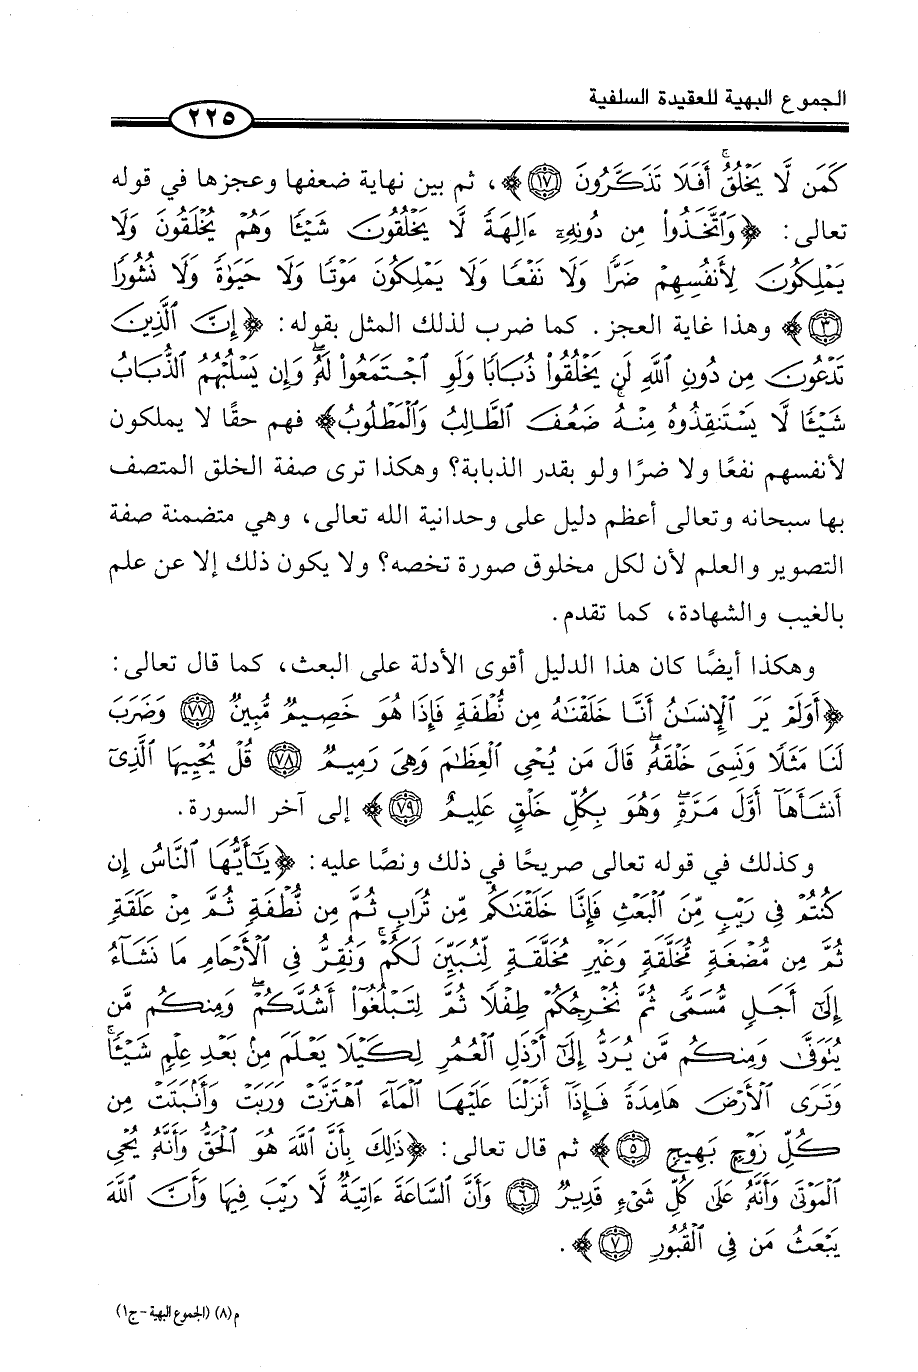 الجموع البهية للعقيدة السلفية
٢٢٥
كَمَن لَّا يَخْلُقُ ۗ أَفَلَا تَذَكَّرُونَ ١٧ ﴾، ثم بين نهاية ضعفها وعجزها في قوله
تعالى: ﴿ وَٱتَّخَذُوا۟ مِن دُونِهِۦٓ ءَالِهَةً لَّا يَخْلُقُونَ شَيْـًٔا وَهُمْ يُخْلَقُونَ وَلَا
يَمْلِكُونَ لِأَنفُسِهِمْ ضَرًّا وَلَا نَفْعًا وَلَا يَمْلِكُونَ مَوْتًا وَلَا حَيَوٰةً وَلَا نُشُورًا
٣ ﴾ وهذا غاية العجز. كما ضرب لذلك المثل بقوله: ﴿ إِنَّ ٱلَّذِينَ
تَدْعُونَ مِن دُونِ ٱللَّهِ لَن يَخْلُقُوا۟ ذُبَابًا وَلَوِ ٱجْتَمَعُوا۟ لَهُۥ ۖ وَإِن يَسْلُبْهُمُ ٱلذُّبَابُ
شَيْـًٔا لَّا يَسْتَنقِذُوهُ مِنْهُ ۚ ضَعُفَ ٱلطَّالِبُ وَٱلْمَطْلُوبُ﴾ فهم حقًا لا يملكون
لأنفسهم نفعًا ولا ضرًا ولو بقدر الذبابة؟ وهكذا ترى صفة الخلق المتصف
بها سبحانه وتعالى أعظم دليل على وحدانية الله تعالى، وهي متضمنة صفة
التصوير والعلم لأن لكل مخلوق صورة تخصه؟ ولا يكون ذلك إلا عن علم
بالغيب والشهادة، كما تقدم.
وهكذا أيضًا كان هذا الدليل أقوى الأدلة على البعث، كما قال تعالى:
﴿أَوَلَمْ يَرَ ٱلْإِنسَٰنُ أَنَّا خَلَقْنَٰهُ مِن نُّطْفَةٍ فَإِذَا هُوَ خَصِيمٌ مُّبِينٌ ٧٧ وَضَرَبَ
لَنَا مَثَلًا وَنَسِىَ خَلْقَهُۥ ۖ قَالَ مَن يُحْىِ ٱلْعِظَٰمَ وَهِىَ رَمِيمٌ ٧٨ قُلْ يُحْيِيهَا ٱلَّذِىٓ
أَنشَأَهَآ أَوَّلَ مَرَّةٍ ۖ وَهُوَ بِكُلِّ خَلْقٍ عَلِيمٌ ٧٩ ﴾ إلى آخر السورة.
وكذلك في قوله تعالى صريحًا في ذلك ونصًا عليه: ﴿ يَٰٓأَيُّهَا ٱلنَّاسُ إِن
كُنتُمْ فِى رَيْبٍ مِّنَ ٱلْبَعْثِ فَإِنَّا خَلَقْنَٰكُم مِّن تُرَابٍ ثُمَّ مِن نُّطْفَةٍ ثُمَّ مِنْ عَلَقَةٍ
ثُمَّ مِن مُّضْغَةٍ مُّخَلَّقَةٍ وَغَيْرِ مُخَلَّقَةٍ لِّنُبَيِّنَ لَكُمْ ۚ وَنُقِرُّ فِى ٱلْأَرْحَامِ مَا نَشَآءُ
إِلَىٰٓ أَجَلٍ مُّسَمًّى ثُمَّ نُخْرِجُكُمْ طِفْلًا ثُمَّ لِتَبْلُغُوٓا۟ أَشُدَّكُمْ ۖ وَمِنكُم مَّن
يُتَوَفَّىٰ وَمِنكُم مَّن يُرَدُّ إِلَىٰٓ أَرْذَلِ ٱلْعُمُرِ لِكَيْلَا يَعْلَمَ مِنۢ بَعْدِ عِلْمٍ شَيْـًٔا ۚ
وَتَرَى ٱلْأَرْضَ هَامِدَةً فَإِذَآ أَنزَلْنَا عَلَيْهَا ٱلْمَآءَ ٱهْتَزَّتْ وَرَبَتْ وَأَنۢبَتَتْ مِن
كُلِّ زَوْجٍۭ بَهِيجٍ ٥ ﴾ ثم قال تعالى: ﴿ذَٰلِكَ بِأَنَّ ٱللَّهَ هُوَ ٱلْحَقُّ وَأَنَّهُۥ يُحْىِ
ٱلْمَوْتَىٰ وَأَنَّهُۥ عَلَىٰ كُلِّ شَىْءٍ قَدِيرٌ ٦ وَأَنَّ ٱلسَّاعَةَ ءَاتِيَةٌ لَّا رَيْبَ فِيهَا وَأَنَّ ٱللَّهَ
يَبْعَثُ مَن فِى ٱلْقُبُورِ ٧ ﴾.
م(٨) (الجموع البهية - ج١)